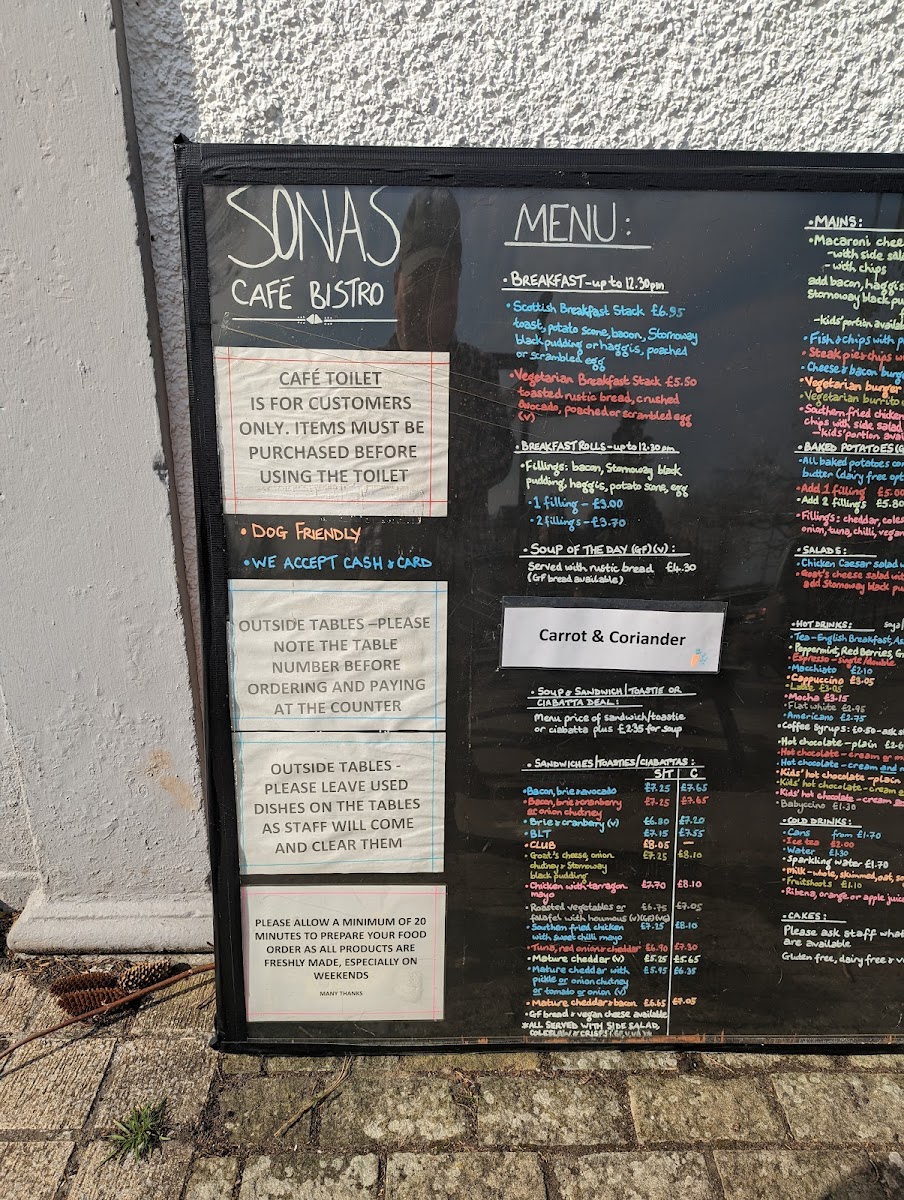 SONAS
CAFÉ BISTRO
CAFÉ TOILET
IS FOR CUSTOMERS
ONLY. ITEMS MUST BE
PURCHASED BEFORE
USING THE TOILET
• DOG FRIENDLY
• WE ACCEPT CASH & CARD
OUTSIDE TABLES –PLEASE
NOTE THE TABLE
NUMBER BEFORE
ORDERING AND PAYING
AT THE COUNTER
OUTSIDE TABLES -
PLEASE LEAVE USED
DISHES ON THE TABLES
AS STAFF WILL COME
AND CLEAR THEM
PLEASE ALLOW A MINIMUM OF 20
MINUTES TO PREPARE YOUR FOOD
ORDER AS ALL PRODUCTS ARE
FRESHLY MADE, ESPECIALLY ON
WEEKENDS
MANY THANKS
MENU:
• BREAKFAST – up to 12.30pm
• Scottish Breakfast Stack £6.95
toast, potato scone, bacon, Stornoway
black pudding or haggis, poached
or scrambled egg
• Vegetarian Breakfast Stack £5.50
toasted rustic bread, crushed
avocado, poached or scrambled egg
(v)
• BREAKFAST ROLLS – up to 12.30pm
• Fillings: bacon, Stornoway black
pudding, haggis, potato scone, egg
• 1 filling – £3.00
• 2 fillings – £3.70
• SOUP OF THE DAY (GF)(V):
Served with rustic bread £4.30
(GF bread available)
Carrot & Coriander
• SOUP & SANDWICH/TOASTIE OR
CIABATTA DEAL:
Menu price of sandwich/toastie
or ciabatta plus £2.35 for soup
• SANDWICHES/TOASTIES/CIABATTAS:
S/T C
• Bacon, brie & avocado £7.25 £7.65
• Bacon, brie & cranberry £7.25 £7.65
or onion chutney
• Brie & cranberry (v) £6.80 £7.20
• BLT £7.15 £7.55
• CLUB £8.05 —
• Goat's cheese, onion £7.25 £8.10
chutney & Stornoway
black pudding
• Chicken with tarragon £7.70 £8.10
mayo
• Roasted vegetables or £6.75 £7.05
falafel with houmous (v)(GF)(VG)
• Southern fried chicken £7.15 £8.10
with sweet chilli mayo
• Tuna, red onion & cheddar £6.90 £7.30
• Mature cheddar (v) £5.25 £5.65
• Mature cheddar with £5.95 £6.35
pickle or onion chutney
or tomato or onion (v)
• Mature cheddar & bacon £6.65 £7.05
• GF bread & vegan cheese available
* ALL SERVED WITH SIDE SALAD,
COLESLAW & CRISPS
• MAINS:
• Macaroni chee
– with side sala
– with chips
add bacon, haggis
Stornoway black pu
– kids' portion availa
• Fish & chips with p
• Steak pie & chips w
• Cheese & bacon burge
• Vegetarian burger
• Vegetarian burrito
• Southern fried chicken
chips with side salad
– kids' portion avai
• BAKED POTATOES (G
• All baked potatoes co
butter (dairy free opt
• Add 1 filling £5.00
• Add 2 fillings £5.80
• Fillings: cheddar, coles
onion, tuna, chilli, vegan
• SALADS:
• Chicken Caesar salad
• Goat's cheese salad wit
add Stornoway black pu
• HOT DRINKS: soya
• Tea – English Breakfast, As
• Peppermint, Red Berries, G
• Espresso – single/double
• Macchiato £2.10
• Cappuccino £3.05
• Latte £3.05
• Mocha £3.15
• Flat white £2.95
• Americano £2.75
• Coffee syrups: £0.50 – ask s
• Hot chocolate – plain £2.6
• Hot chocolate – cream or m
• Hot chocolate – cream and
• Kids' hot chocolate – plain
• Kids' hot chocolate – cream
• Kids' hot chocolate – cream
• Babyccino £1.30
• COLD DRINKS:
• Cans from £1.70
• Ice tea £2.00
• Water £1.30
• Sparkling water £1.70
• Milk – whole, skimmed, oat, so
• Fruitshoots £1.10
• Ribena, orange or apple juice
• CAKES:
Please ask staff what
are available
Gluten free, dairy free & v